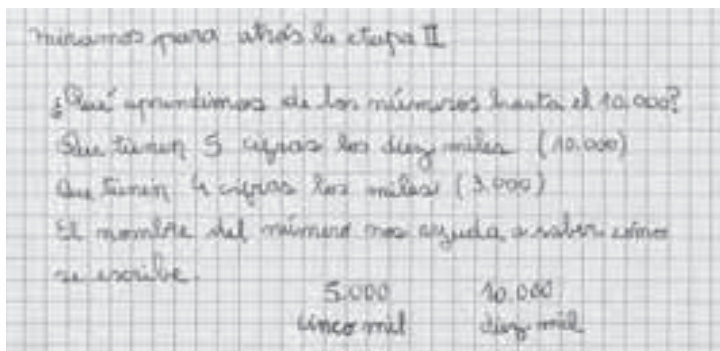 miramos para atrás la etapa II
¿Qué aprendimos de los números hasta el 10.000?
Que tienen 5 cifras los diez miles (10.000)
Que tienen 4 cifras los miles (3.000)
El nombre del número nos ayuda a saber cómo
se escribe.
5.000 10.000
cinco mil diez mil